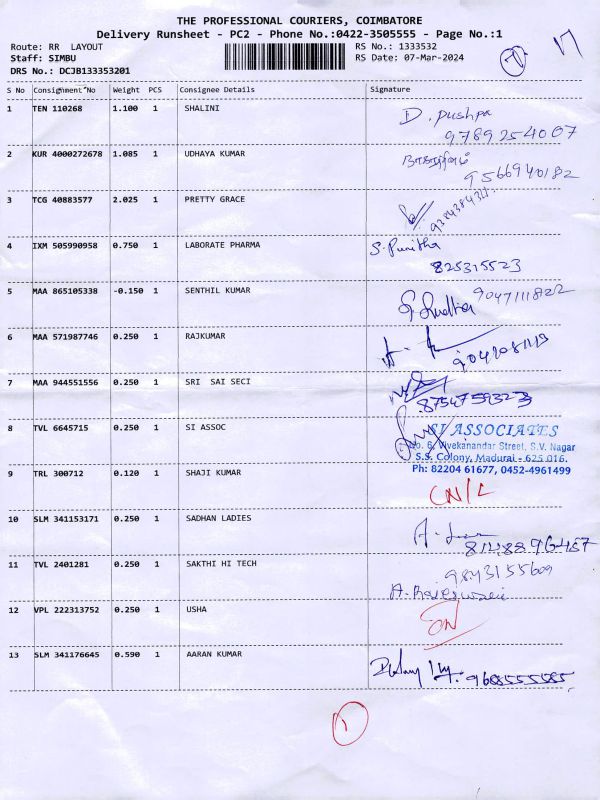 THE PROFESSIONAL COURIERS, COIMBATORE
Delivery Runsheet - PC2 - Phone No.:0422-3505555 - Page No.:1
Route: RR LAYOUT
RS No.: 1333532
Staff: SIMBU
RS Date: 07-Mar-2024
DRS No.: DCJB133353201
S No Consignment No Weight PCS Consignee Details Signature
1 TEN 110268 1.100 1 SHALINI D. pushpa
9789254007
2 KUR 4000272678 1.085 1 UDHAYA KUMAR
9566940182
3 TCG 40883577 2.025 1 PRETTY GRACE
4 IXM 505990958 0.750 1 LABORATE PHARMA S. Punitha
825315523
5 MAA 865105338 -0.150 1 SENTHIL KUMAR 9047111822
6 MAA 571987746 0.250 1 RAJKUMAR
7 MAA 944551556 0.250 1 SRI SAI SECI
8754759323
8 TVL 6645715 0.250 1 SI ASSOC SI ASSOCIATES
No. 6, Vivekanandar Street, S.V. Nagar
S.S. Colony, Madurai - 625 016.
Ph: 82204 61677, 0452-4961499
9 TRL 300712 0.120 1 SHAJI KUMAR CN/L
10 SLM 341153171 0.250 1 SADHAN LADIES
11 TVL 2401281 0.250 1 SAKTHI HI TECH 9843155609
12 VPL 222313752 0.250 1 USHA
13 SLM 341176645 0.590 1 AARAN KUMAR
9688555585
1